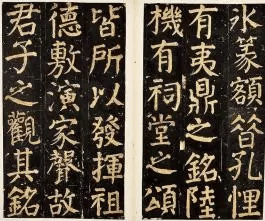 氷篆額昔孔悝
有夷鼎之銘陸
機有祠堂之頌
皆所以發揮祖
德敷演家聲故
君子之觀其銘